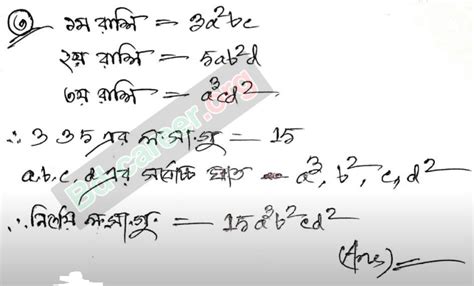 ৩ ১ম রাশি = 3a²bc
২য় রাশি = 5ab²d
৩য় রাশি = a³cd²
∴ 3 ও 5 এর ল.সা.গু = 15
a,b,c,d এর সর্বোচ্চ ঘাত = a³, b², c, d²
∴ নির্ণেয় ল.সা.গু. = 15a³b²cd²
(Ans)
Bdcareer.org